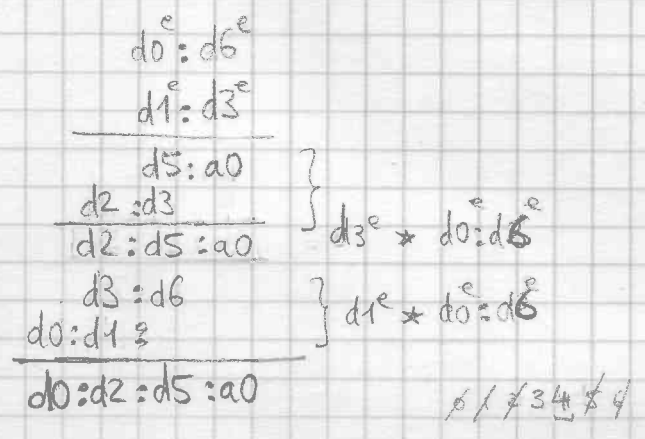 d0ᵉ:d6ᵉ
d1ᵉ:d3ᵉ
d5:a0
d2:d3
d2:d5:a0
d3ᵉ * d0ᵉ:d6ᵉ
d3:d6
d0:d1:
d1ᵉ * d0ᵉ:d6ᵉ
d0:d2:d5:a0
3 4